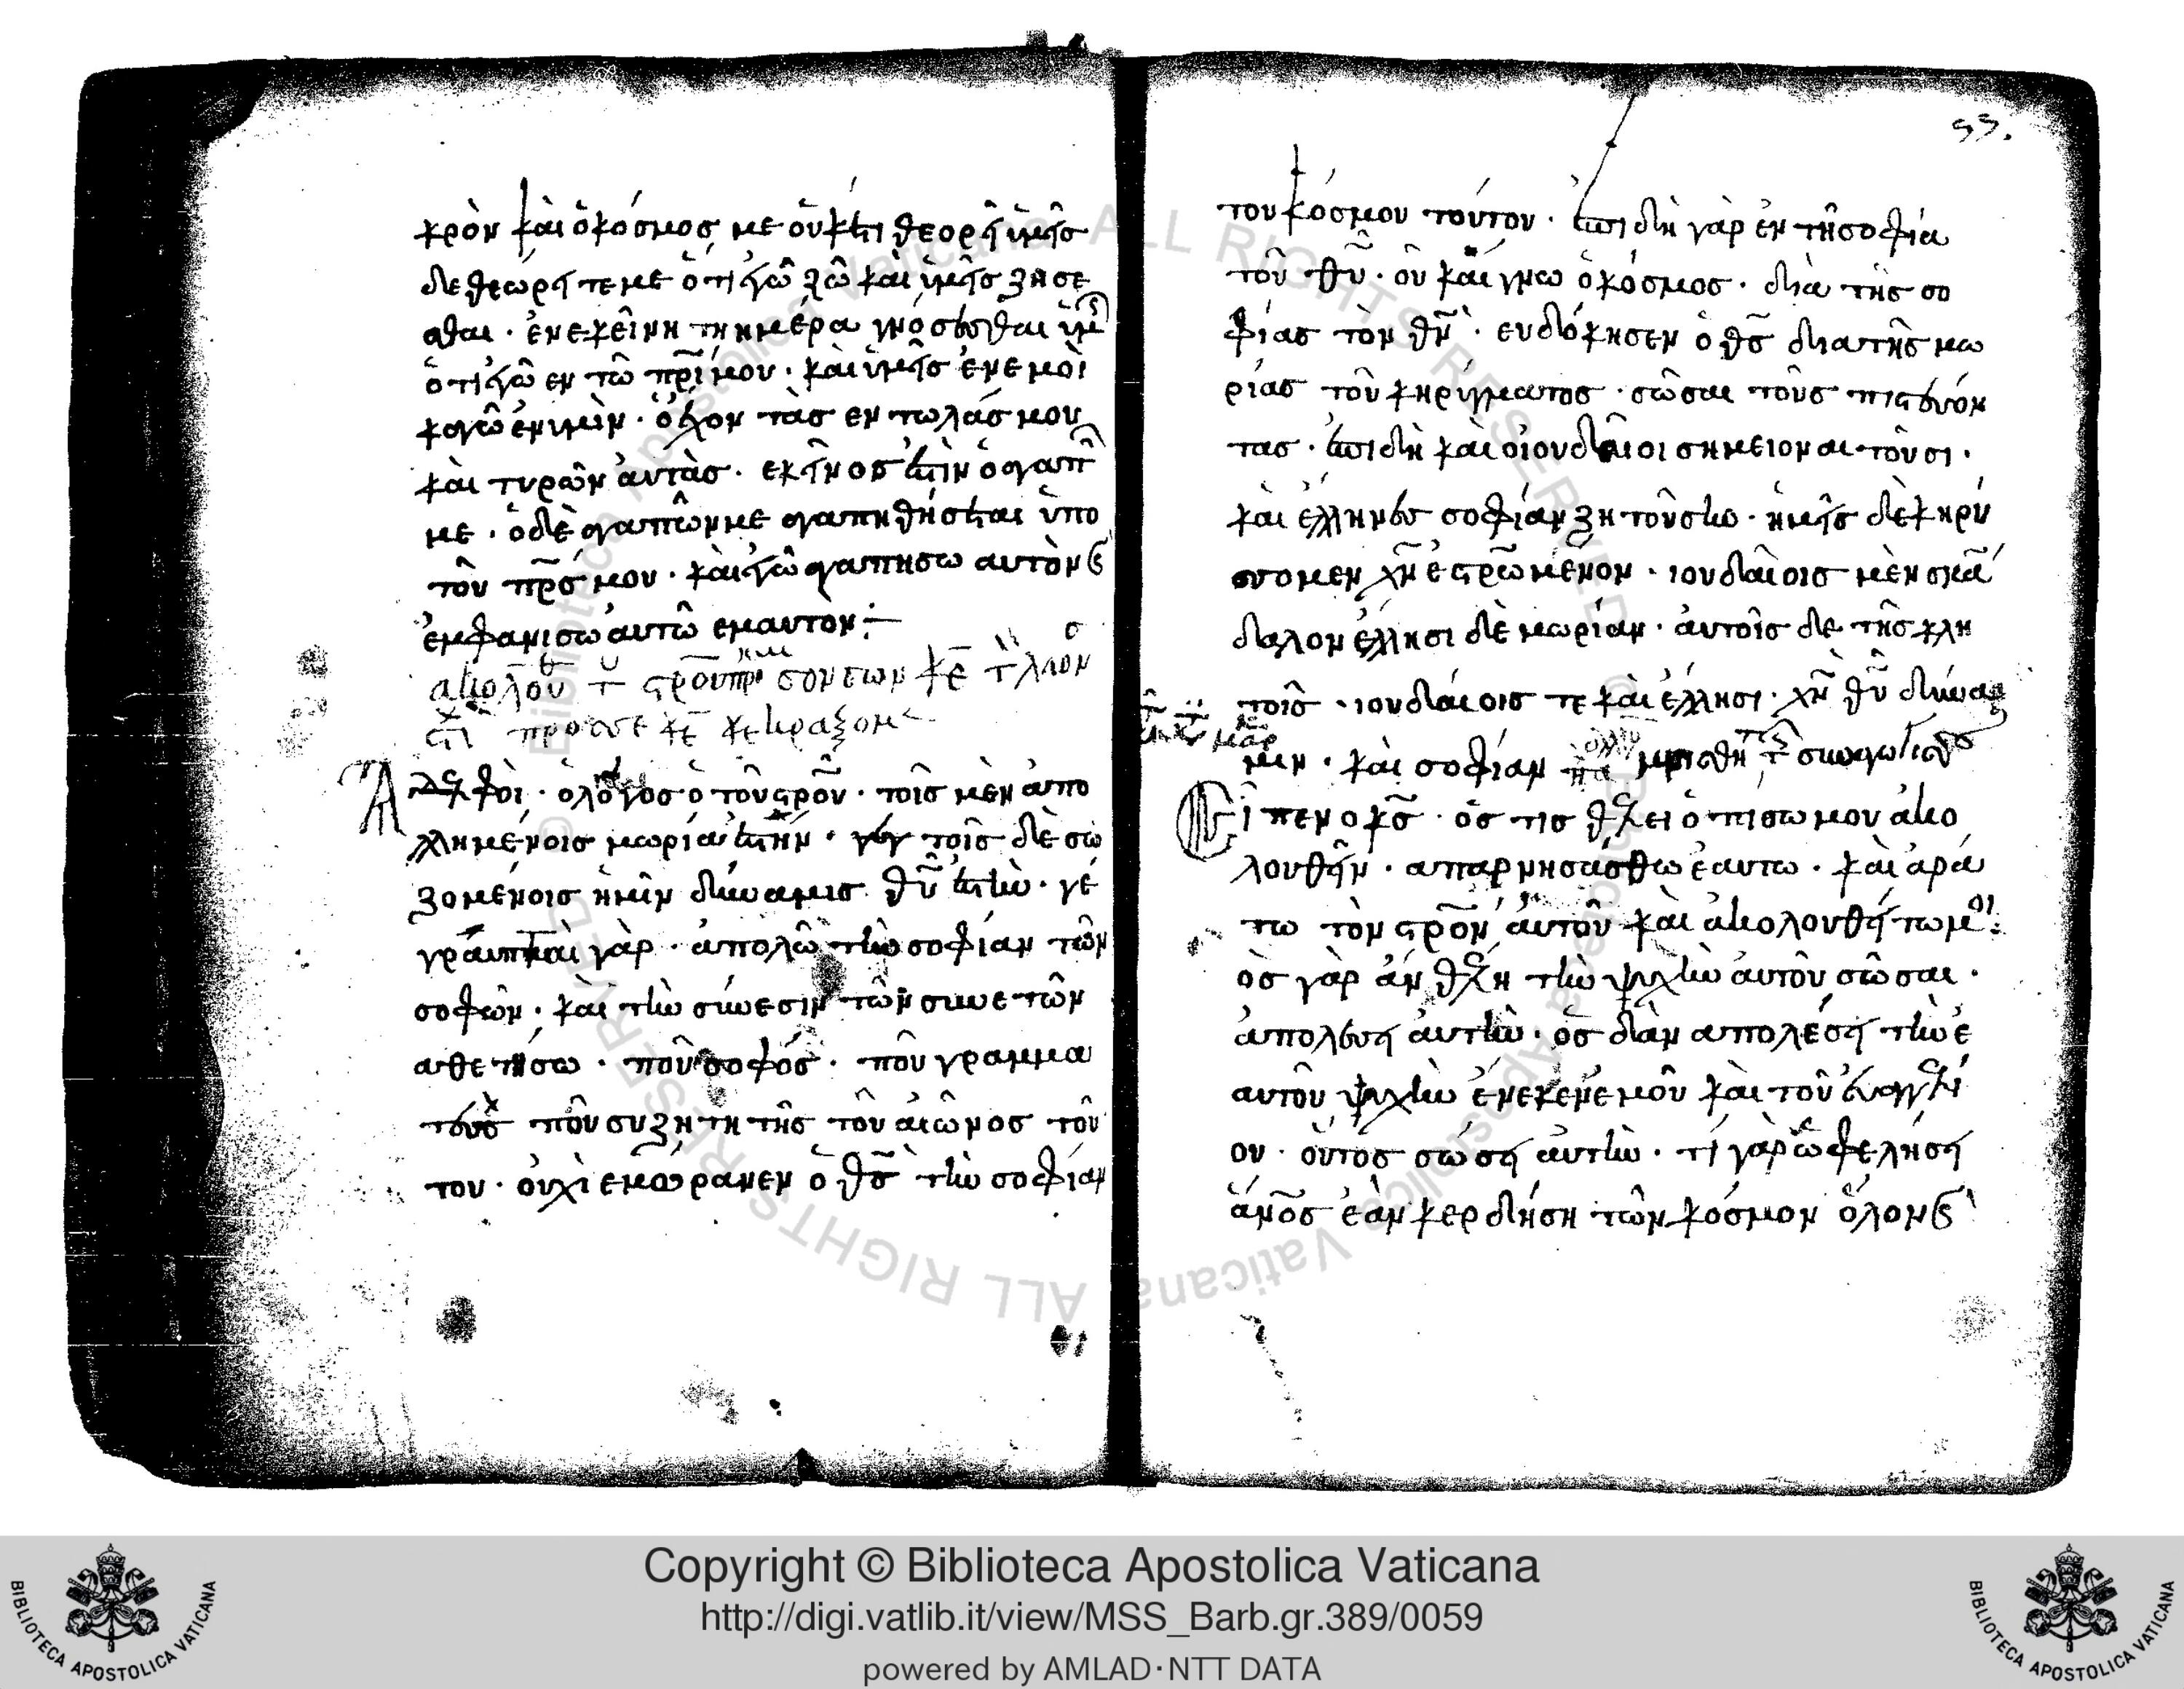 κρὸν καὶ ὁ κόσμος με οὐκέτι θεορεῖ ὑμεῖς
δε θεωρεῖτε με ὁτι ἐγὼ ζῶ καὶ ὑμεῖς ζησε
σθαι · ἐν εκεῖνη τη ημέρα γνοσεσθαι ὑμεῖς
ὁτι ἐγὼ εν τῶ πρι μου · καὶ ὑμεῖς ἐν εμοὶ
καγὼ ἐν ὑμὶν · ὁ ἔχον τὰς εντωλάς μου
καὶ τυρῶν ἀυτὰς · εκεῖνος ἐστὶν ὁ αγαπῶν
με · ὁ δὲ αγαπῶν με αγαπηθήσεται ὑπο
τοῦ πρς μου · καὶ ἐγὼ αγαπησω αυτὸν ϛ
ἐμφανισω ἀυτῶ εμαυτον ÷
προς σε κε κεκραξομ
Αδελφοὶ · ὁ λόγος ὁ τοῦ σρου · τοῖς μὲν ἀπο
λλημένοις μωρία ἐστὴν · τοῖς δὲ σω
ζομένοις ἡμῖν δύναμις θυ ἐστὶν · γέ
γραπται γὰρ · ἀπολῶ τὴν σοφίαν τῶν
σοφῶν · καὶ τὴν σύνεσιν τῶν συνετῶν
αθετησω · ποῦ σοφός · ποῦ γραμμα
τεὺς ποῦ συζητητῆς τοῦ ἀιῶνος τοῦ
του · οὐχὶ εμώρανεν ὁ θς τὴν σοφίαν
53.
του κόσμου τούτου · ἐπιδὴ γὰρ ἐν τῆ σοφία
τοῦ θυ · οὐκ ἔγνω ὁ κόσμος · διὰ τῆς σο
φίας τὸν θν · ευδόκησεν ὁ θς δια τῆς μω
ρίας τοῦ κηρύγματος · σῶσαι τοὺς πιστεύον
τας · ἐπιδὴ καὶ οἱ ιουδαῖοι σημειον αιτοῦσι ·
καὶ ἕλληνες σοφίαν ζητοῦσιν · ἡμεῖς δὲ κηρύ
σσομεν χν ἐσρωμένον · ιουδαίοις μὲν σκα
δαλον ἕλλησι δὲ μωρίαν · ἀυτοῖς δε τῆς κλη
τοῖς · ιουδάιοις τε καὶ ἕλλησι · χν θυ δύνα
μιν · καὶ σοφίαν
Εἶπεν ο κς · ὅς τις θέλει ὁπισω μου ἀκο
λουθεῖν · απαρνησάσθω ἑαυτω · καὶ ἀρά
τω τὸν σρον ἀυτοῦ καὶ ἀκολουθείτω μοι :
ὃς γὰρ ἀν θέλη τὴν ψυχὴν ἀυτοῦ σῶσαι ·
ἀπολέσει ἀυτὴν · ὃς δ' ὰν απολέσει τὴν ἑ
αυτοῦ ψυχὴν ἑνεκεν ἐμοῦ καὶ τοῦ ἐυαγγελί
ου · οὗτος σώσει ἀυτὴν · τί γὰρ ὠφελήσει
ἀνος ἐὰν κερδήση τὼν κόσμον ὅλον ϛ
Copyright © Biblioteca Apostolica Vaticana
http://digi.vatlib.it/view/MSS_Barb.gr.389/0059
powered by AMLAD·NTT DATA
BIBLIOTECA APOSTOLICA VATICANA
BIBLIOTECA APOSTOLICA VATICANA